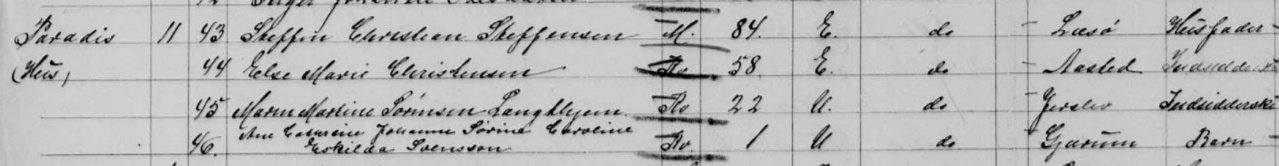 Paradis 11 43 Steffen Christian Steffensen M. 84. E. do – Læsø Husfader
(Hus) 44 Else Marie Christensen Kv 58 E. do – Aasted
45 Maren Martine Sørensen Langthjem Kv 22 U. do – Jerslev Indsidderske
46. Ane Cathrine Johanne Sørine Caroline
Eskilda Svensson Kv. 1 U do – Gjærum Barn